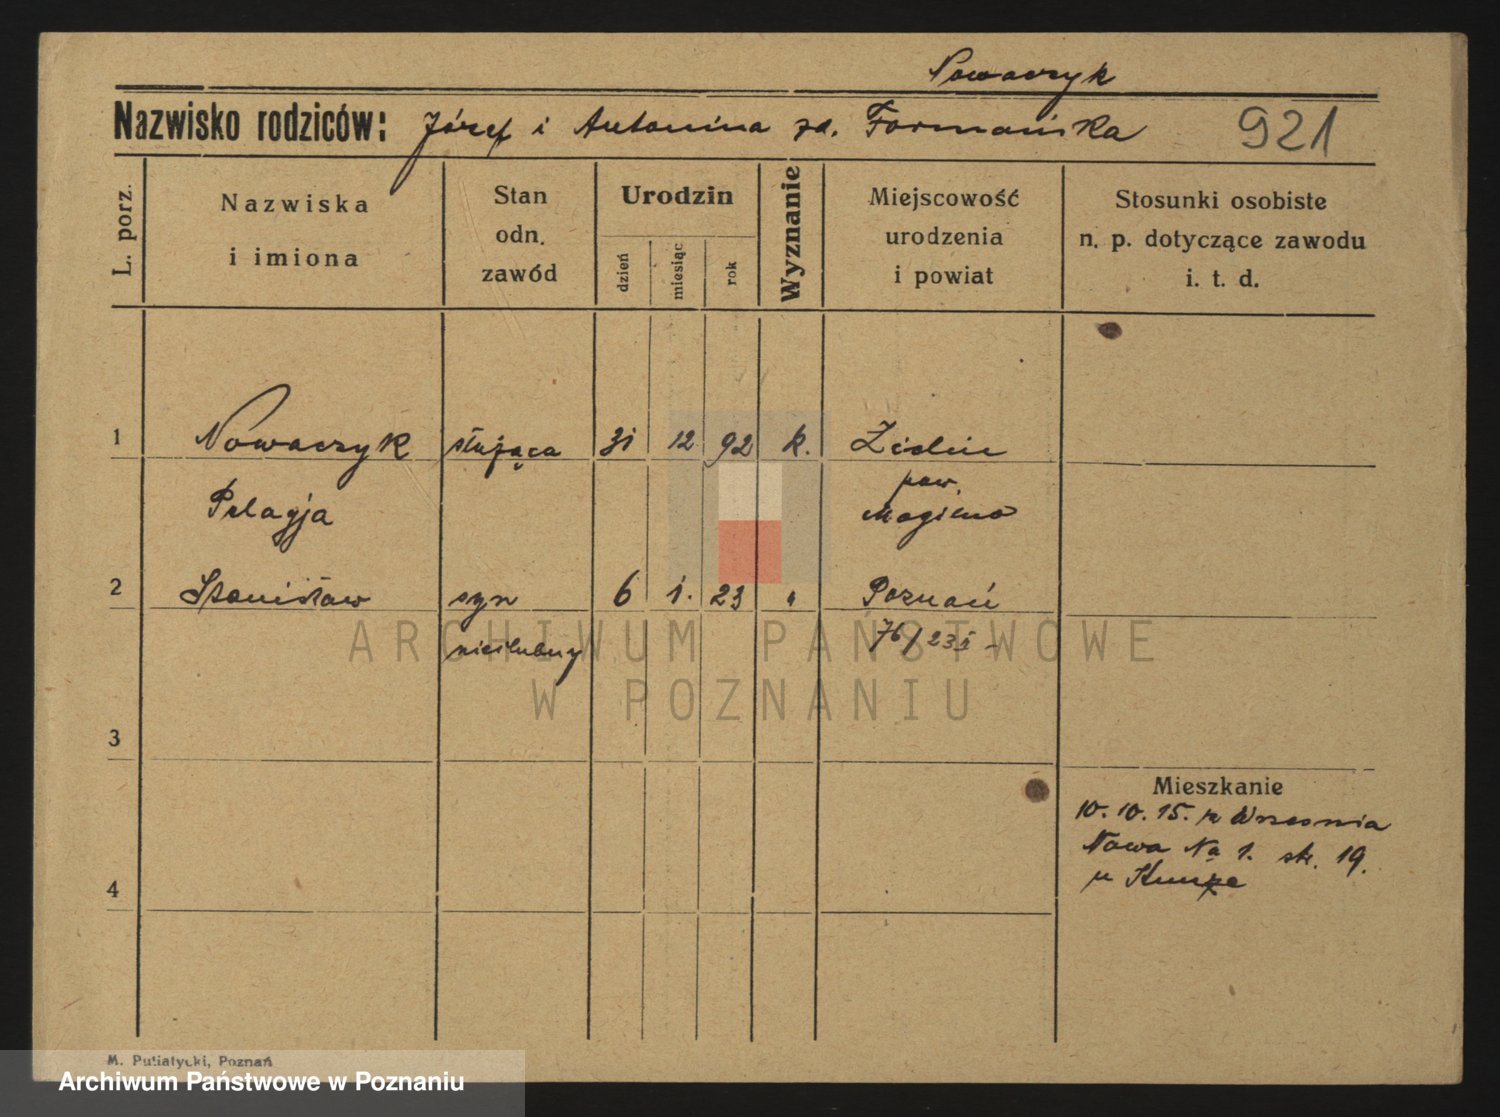 Nowaczyk
Nazwisko rodziców: Józef i Antonina zd. Formańska 921
L. porz.
Nazwiska
i imiona
Stan
odn.
zawód
Urodzin
dzień
miesiąc
rok
Wyznanie
Miejscowość
urodzenia
i powiat
Stosunki osobiste
n. p. dotyczące zawodu
i. t. d.
1 Nowaczyk służąca 31 12 92 k.
Pelagja
pow.
Mogilno
2 Stanisław syn 6 1. 23 " Poznań
nieślubny
76/23 I -
3
4
Mieszkanie
10. 10. 15. z Wrzesnia
Nowa No 1. sk. 19.
u
M. Putiatycki, Poznań
ARCHIWUM PAŃSTWOWE
W POZNANIU
Archiwum Państwowe w Poznaniu